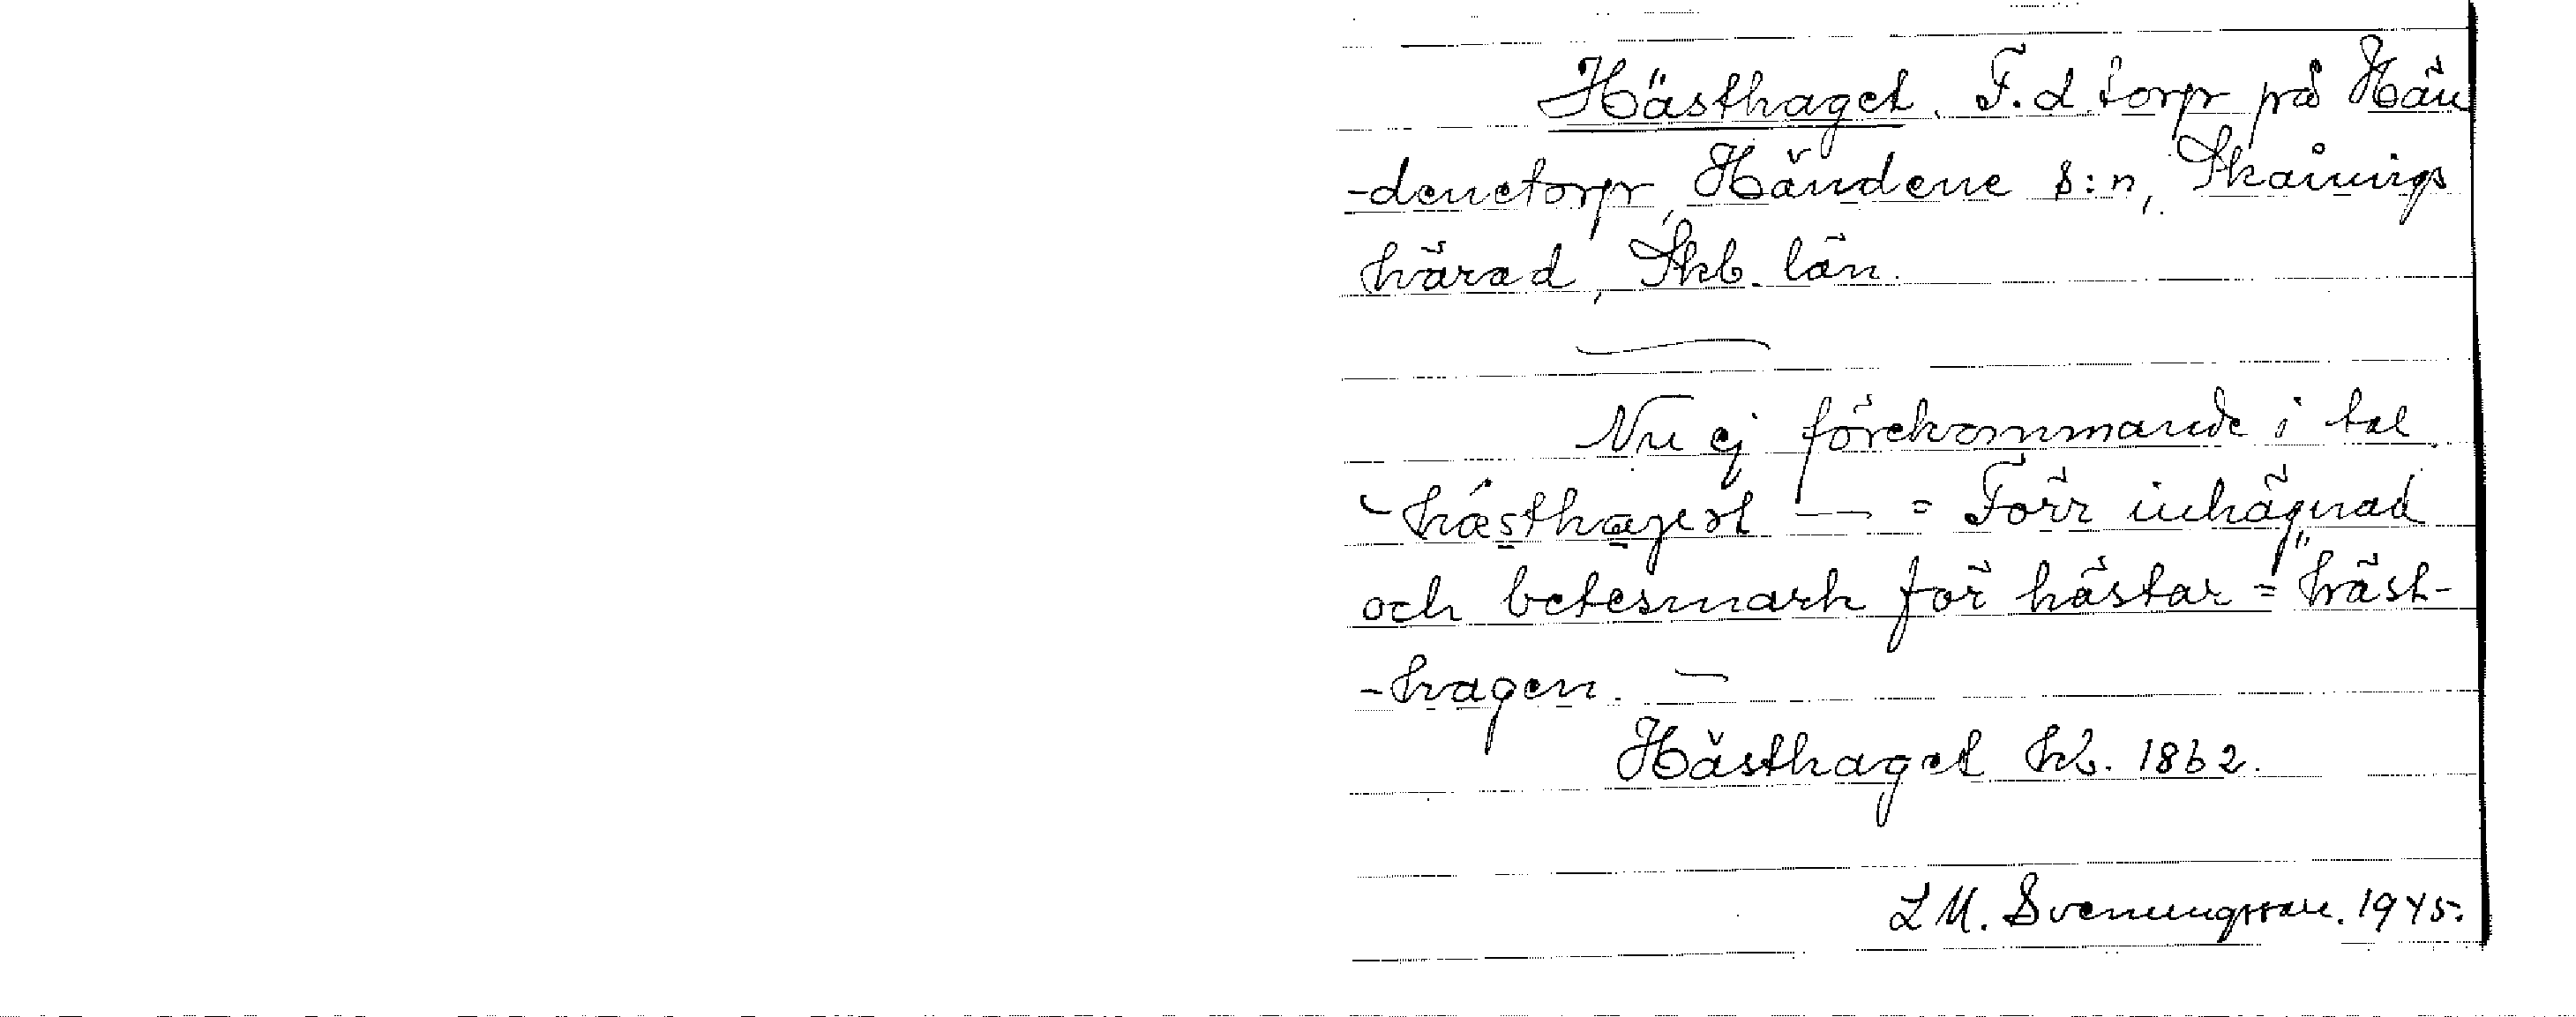 Hästhaget. F. d torp på Hän
-denetorp, Händene s:n, Skånings
härad, Skb. län.
Nu ej förekommande i tal.
- hæsthaget — = Förr inhägnad
och betesmark för hästar = "häst-
-hagen. —
Hästhaget kb. 1862.
L M. Svenungsson. 1945.